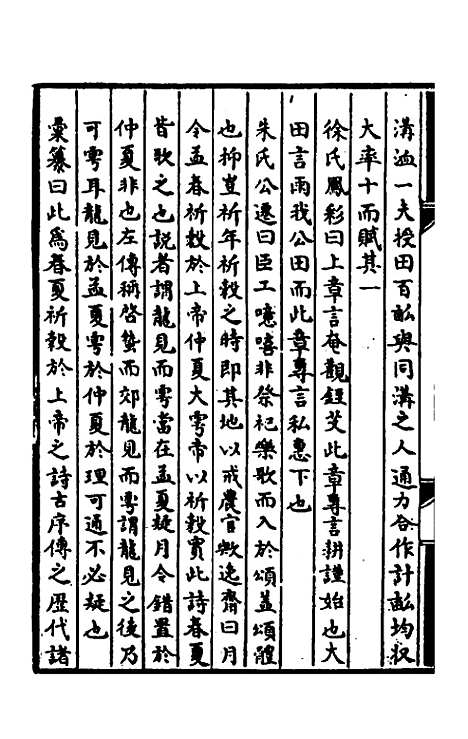 溝洫一夫授田百畝與同溝之人通力合作計畝均収
大率十而賦其一
徐氏鳳彩曰上章言奄觀銍艾此章專言耕謹始也大
田言雨我公田而此章專言私惠下也
朱氏公遷曰臣工噫嘻非祭祀樂歌而入於頌蓋頌體
也抑豈祈年祈穀之時即其地以戒農官歟逸齋曰月
令孟春祈穀於上帝仲夏大雩帝以祈穀實此詩春夏
皆歌之也說者謂龍見而雩當在孟夏疑月令錯置於
仲夏非也左傳稱啓蟄而郊龍見而雩謂龍見之後乃
可雩耳龍見於孟夏雩於仲夏於理可通不必疑也
彙纂曰此為春夏祈穀於上帝之詩古序傳之歴代諸